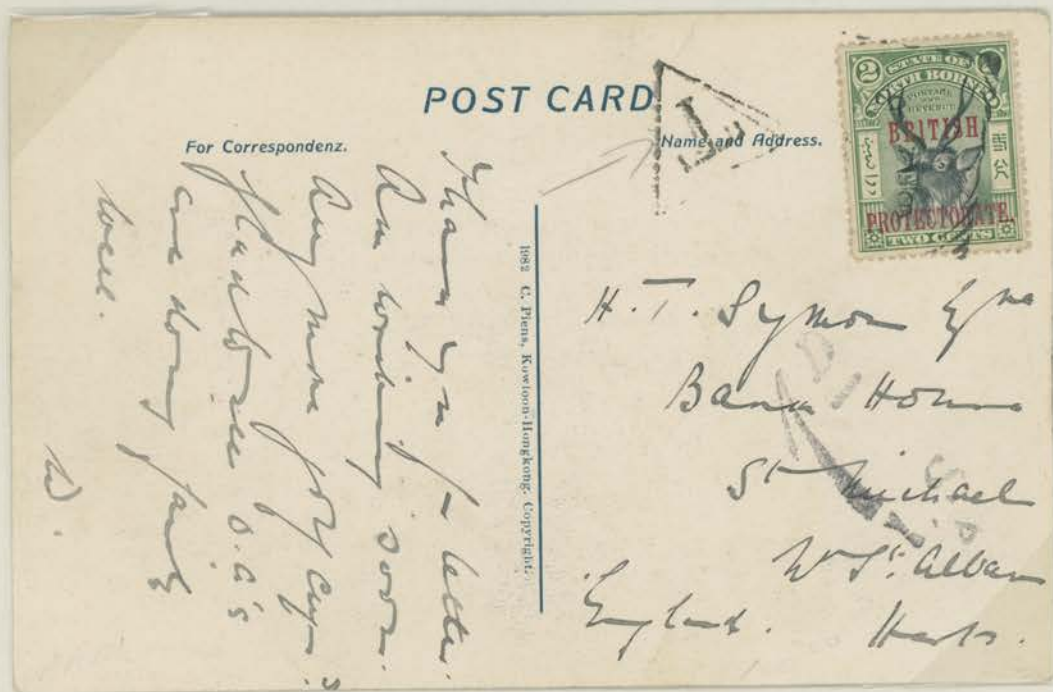 POST CARD
For Correspondenz.
Name and Address.
T
2
STATE OF
NORTH BORNEO
POSTAGE
AND
REVENUE
BRITISH
PROTECTORATE.
TWO CENTS
1982 C. Piens, Kowloon-Hongkong. Copyright.
Thank you for letter.
Am writing soon.
Any more golf cups?
o.a's
are doing fairly
well.
W.
H. T. Symon Esqre
House
St Michael
Nr St. Alban
Herts.
England.